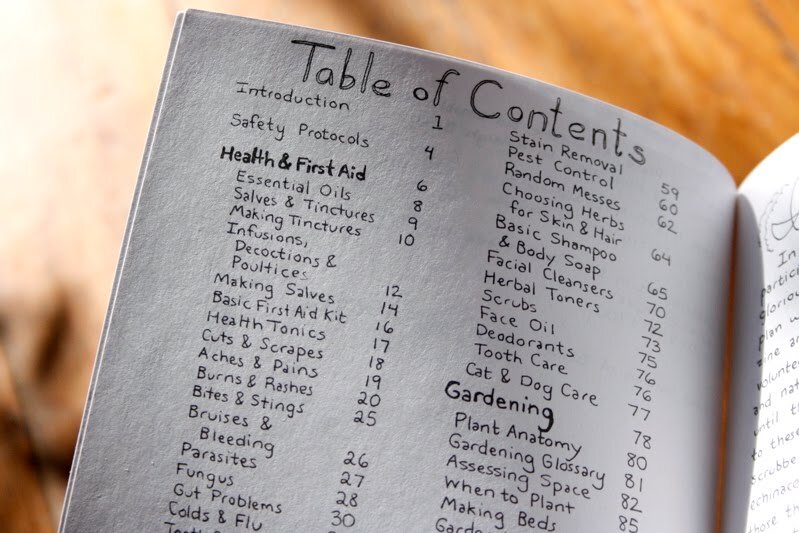 Table of Contents
Introduction 1
Safety Protocols 4
Health & First Aid 6
Essential Oils 8
Salves & Tinctures 9
Making Tinctures 10
Infusions,
Decoctions &
Poultices 12
Making Salves 14
Basic First Aid Kit 16
Health Tonics 17
Cuts & Scrapes 18
Aches & Pains 19
Burns & Rashes 20
Bites & Stings 25
Bruises &
Bleeding 26
Parasites 27
Fungus 28
Gut Problems 30
Colds & Flu
Stain Removal 59
Pest Control 60
Random Messes 62
Choosing Herbs
for Skin & Hair 64
Basic Shampoo
& Body Soap 65
Facial Cleansers 70
Herbal Toners 72
Scrubs 73
Face Oil 75
Deodorants 76
Tooth Care 76
Cat & Dog Care 77
Gardening 78
Plant Anatomy 80
Gardening Glossary 81
Assessing Space 82
When to Plant 85
Making Beds
In
plan
and
until
to these
those